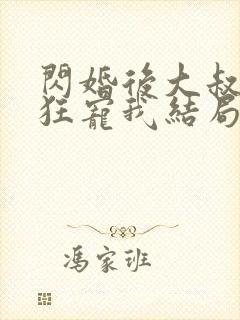 閃婚後大叔
狂寵我結局
馮家班